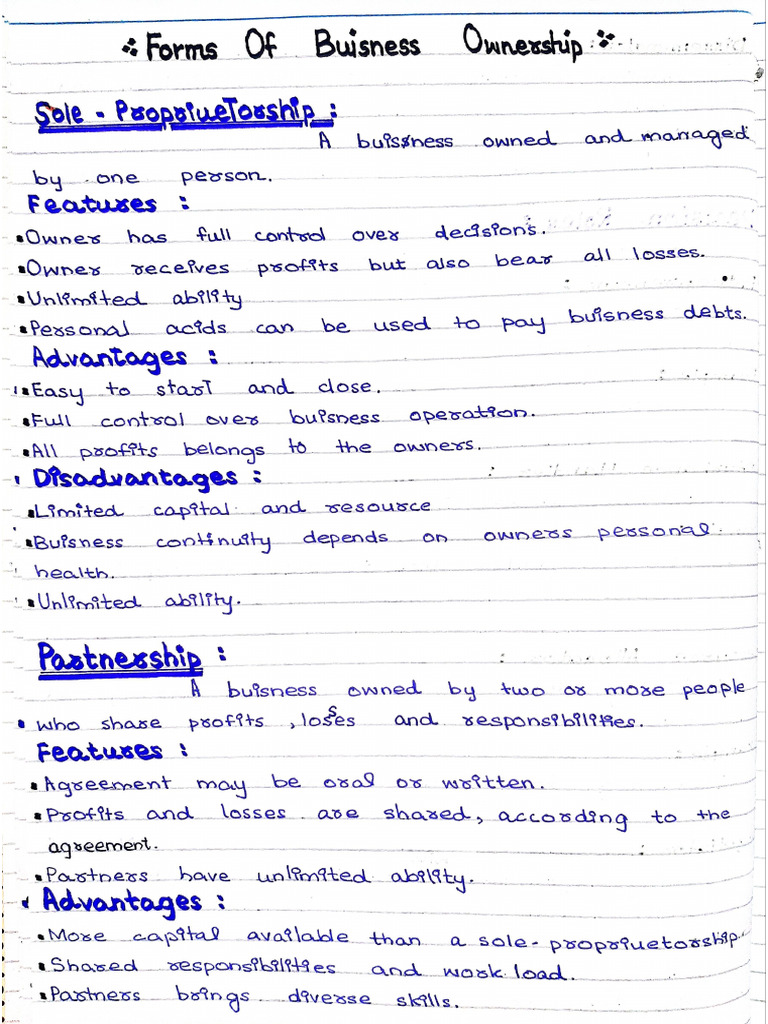 Forms Of Buisness Ownership
Sole - Propriuetorship :
A buissness owned and managed
by one person.
Features :
Owner has full control over decisions.
Owner receives profits but also bear all losses.
Unlimited ability
Personal acids can be used to pay buisness debts.
Advantages :
Easy to start and close.
Full control over buisness operation.
All profits belongs to the owners.
Disadvantages :
Limited capital and resource
Buisness continuity depends on owners personal
health.
Unlimited ability.
Partnership :
A buisness owned by two or more people
who share profits , losses and responsibilities.
Features :
Agreement may be oral or written.
Profits and losses are shared, according to the
agreement.
Partners have unlimited ability.
Advantages :
More capital available than a sole-propriuetorship.
Shared responsibilities and work load.
Partners brings diverse skills.